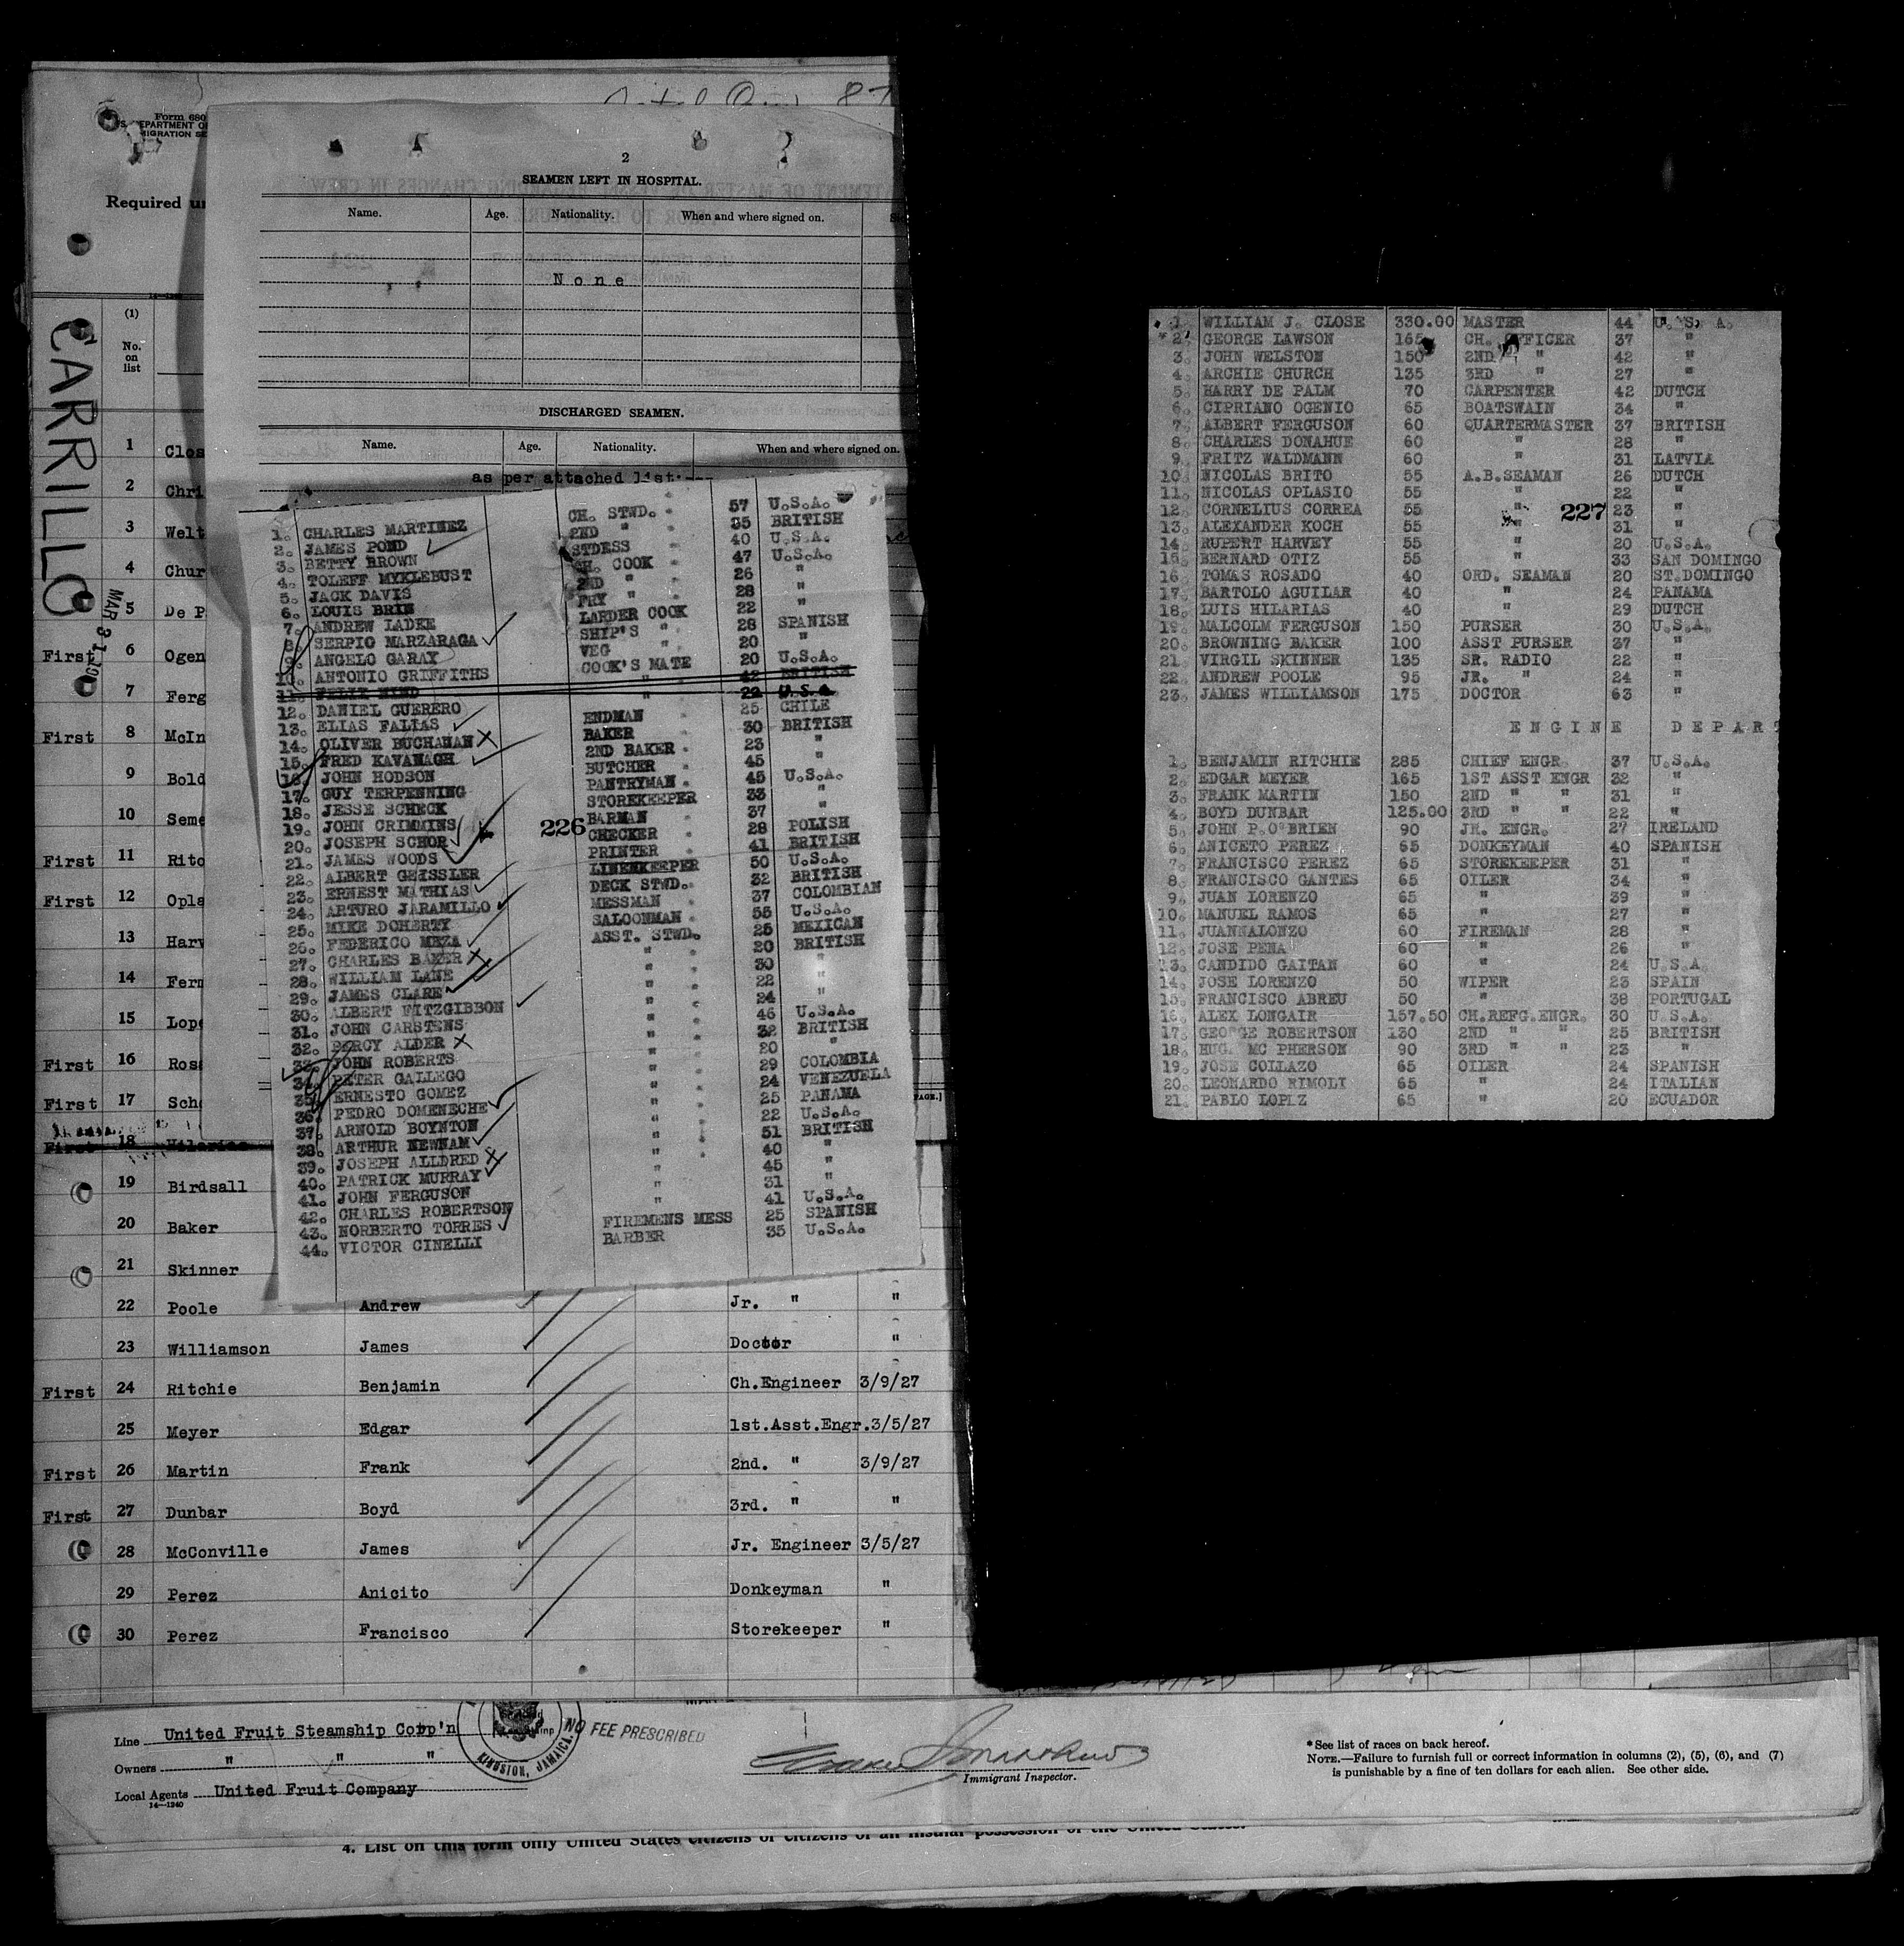 Form 680
MIGRATION SE
Required un
CARRILLO
MAR 31 19
(1)
No.
on
list
1 Clos
2 Chri
3 Welt
4 Chur
5 De P
First 6 Ogen
7 Ferg
First 8 McIn
9 Bold
10 Seme
First 11 Rito
First 12 Opla
13 Harv
14 Fern
15 Lope
First 16 Rosa
First 17 Scho
First 18 Hilarias
19 Birdsall
20 Baker
21 Skinner
22 Poole Andrew Jr. " "
23 Williamson James Doctor "
First 24 Ritchie Benjamin Ch.Engineer 3/9/27
25 Meyer Edgar 1st.Asst.Engr. 3/5/27
First 26 Martin Frank 2nd. " 3/9/27
First 27 Dunbar Boyd 3rd. " "
28 McConville James Jr. Engineer 3/5/27
29 Perez Anicito Donkeyman "
30 Perez Francisco Storekeeper "
2
SEAMEN LEFT IN HOSPITAL.
Name. Age. Nationality. When and where signed on.
None
DISCHARGED SEAMEN.
Name. Age. Nationality. When and where signed on.
as per attached list:---
1. CHARLES MARTINEZ CH. STWD. 57 U.S.A.
2. JAMES POND 2ND " 35 BRITISH
3. BETTY BROWN STDESS 40 U.S.A.
4. TOLEFF MYKLEBUST CH. COOK 47 U.S.A.
5. JACK DAVIS 2ND " 26 "
6. LOUIS BRIN FRY " 28 "
7. ANDREW LADKE LARDER COOK 22 "
8. SERPIO MARZARAGA SHIP'S " 28 SPANISH
9. ANGELO GARAY VEG 20 "
10. ANTONIO GRIFFITHS COOK'S MATE 20 U.S.A.
11. FELIX HIND " 42 BRITISH
12. DANIEL GUERERO " 22 U.S.A.
13. ELIAS FALIAS ENDMAN 25 CHILE
14. OLIVER BUCHANAN BAKER 30 BRITISH
15. FRED KAVANAGH 2ND BAKER 23 "
16. JOHN HODSON BUTCHER 45 "
17. GUY TERPENNING PANTRYMAN 45 U.S.A.
18. JESSE SCHECK STOREKEEPER 33 "
19. JOHN CRIMMINS BARMAN 37 "
20. JOSEPH SCHOR CHECKER 28 POLISH
226
21. JAMES WOODS PRINTER 41 BRITISH
22. ALBERT GEISSLER LINENKEEPER 50 U.S.A.
23. ERNEST MATHIAS DECK STWD. 32 BRITISH
24. ARTURO JARAMILLO MESSMAN 37 COLOMBIAN
25. MIKE DOHERTY SALOONMAN 55 U.S.A.
26. FEDERICO MEZA ASST. STWD. 25 MEXICAN
27. CHARLES BAKER " 20 BRITISH
28. WILLIAM LANE " 30 "
29. JAMES CLARE " 22 "
30. ALBERT FITZGIBBON " 24 "
31. JOHN CARSTENS " 46 U.S.A.
32. PERCY ALDER " 32 BRITISH
33. JOHN ROBERTS " 20 "
34. PETER GALLEGO " 29 COLOMBIA
35. ERNESTO GOMEZ " 24 VENEZUELA
36. PEDRO DOMENECHE " 25 PANAMA
37. ARNOLD BOYNTON " 22 U.S.A.
38. ARTHUR NEWNAM " 51 BRITISH
39. JOSEPH ALLDRED " 40 "
40. PATRICK MURRAY " 45 "
41. JOHN FERGUSON " 31 "
42. CHARLES ROBERTSON " 41 U.S.A.
43. NORBERTO TORRES FIREMENS MESS 25 SPANISH
44. VICTOR CINELLI BARBER 35 U.S.A.
PAGE.]
1. WILLIAM J. CLOSE 330.00 MASTER 44 U. S. A.
2. GEORGE LAWSON 165 CH. OFFICER 37 "
3. JOHN WELSTON 150 2ND " 42 "
4. ARCHIE CHURCH 135 3RD " 27 "
5. HARRY DE PALM 70 CARPENTER 42 DUTCH
6. CIPRIANO OGENIO 65 BOATSWAIN 34 "
7. ALBERT FERGUSON 60 QUARTERMASTER 37 BRITISH
8. CHARLES DONAHUE 60 " 28 "
9. FRITZ WALDMANN 60 " 31 LATVIA
10. NICOLAS BRITO 55 A.B.SEAMAN 26 DUTCH
11. NICOLAS OPLASIO 55 " 22 "
12. CORNELIUS CORREA 55 " 23 "
227
13. ALEXANDER KOCH 55 " 31 "
14. RUPERT HARVEY 55 " 20 U.S.A.
15. BERNARD OTIZ 55 " 33 SAN DOMINGO
16. TOMAS ROSADO 40 ORD. SEAMAN 20 ST.DOMINGO
17. BARTOLO AGUILAR 40 " 24 PANAMA
18. LUIS HILARIAS 40 " 29 DUTCH
19. MALCOLM FERGUSON 150 PURSER 30 U.S.A.
20. BROWNING BAKER 100 ASST PURSER 37 "
21. VIRGIL SKINNER 135 SR. RADIO 22 "
22. ANDREW POOLE 95 JR. " 24 "
23. JAMES WILLIAMSON 175 DOCTOR 63 "
ENGINE DEPART
1. BENJAMIN RITCHIE 285 CHIEF ENGR. 37 U.S.A.
2. EDGAR MEYER 165 1ST ASST ENGR 32 "
3. FRANK MARTIN 150 2ND " " 31 "
4. BOYD DUNBAR 125.00 3RD " " 22 "
5. JOHN P.O'BRIEN 90 JR. ENGR. 27 IRELAND
6. ANICETO PEREZ 65 DONKEYMAN 40 SPANISH
7. FRANCISCO PEREZ 65 STOREKEEPER 31 "
8. FRANCISCO GANTES 65 OILER 34 "
9. JUAN LORENZO 65 " 39 "
10. MANUEL RAMOS 65 " 27 "
11. JUANNALONZO 60 FIREMAN 28 "
12. JOSE PENA 60 " 26 "
13. CANDIDO GAITAN 60 " 24 U.S.A
14. JOSE LORENZO 50 WIPER 23 SPAIN
15. FRANCISCO ABREU 50 " 38 PORTUGAL
16. ALEX LONGAIR 157.50 CH.REFG.ENGR. 30 U.S.A.
17. GEORGE ROBERTSON 130 2ND " " 25 BRITISH
18. HUG. MC PHERSON 90 3RD " " 23 "
19. JOSE COLLAZO 65 OILER 24 SPANISH
20. LEONARDO RIMOLI 65 " 24 ITALIAN
21. PABLO LOPEZ 65 " 20 ECUADOR
Line United Fruit Steamship Corp'n
Owners " " "
Local Agents United Fruit Company
14—1240
KINGSTON, JAMAICA.
NO FEE PRESCRIBED
Immigrant Inspector.
* See list of races on back hereof.
NOTE.—Failure to furnish full or correct information in columns (2), (5), (6), and (7)
is punishable by a fine of ten dollars for each alien. See other side.
4. List on this form only United States citizens or citizens of an insular possession of the United States.